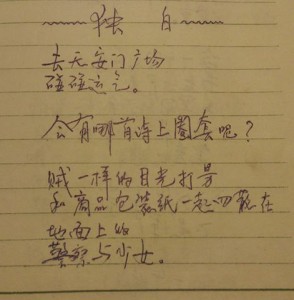 独白
去天安门广场
碰碰运气。
会有哪首诗上圈套呢？
贼一样的目光打量
和商品包装纸一起四散在
地面上的
警察与少女。